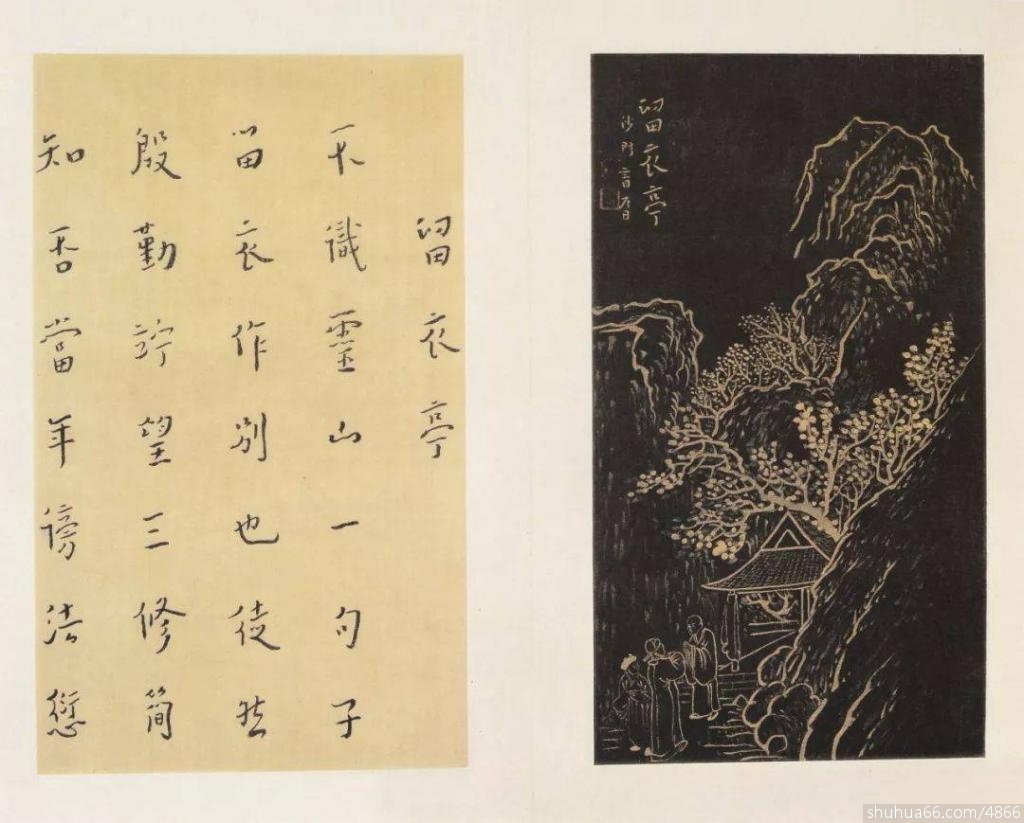 留衣亭
沙門
留衣亭
不識靈山一句子
留衣作別也徒然
殷勤竚望三修簡
知否當年謗法愆
shuhua66.com/4866